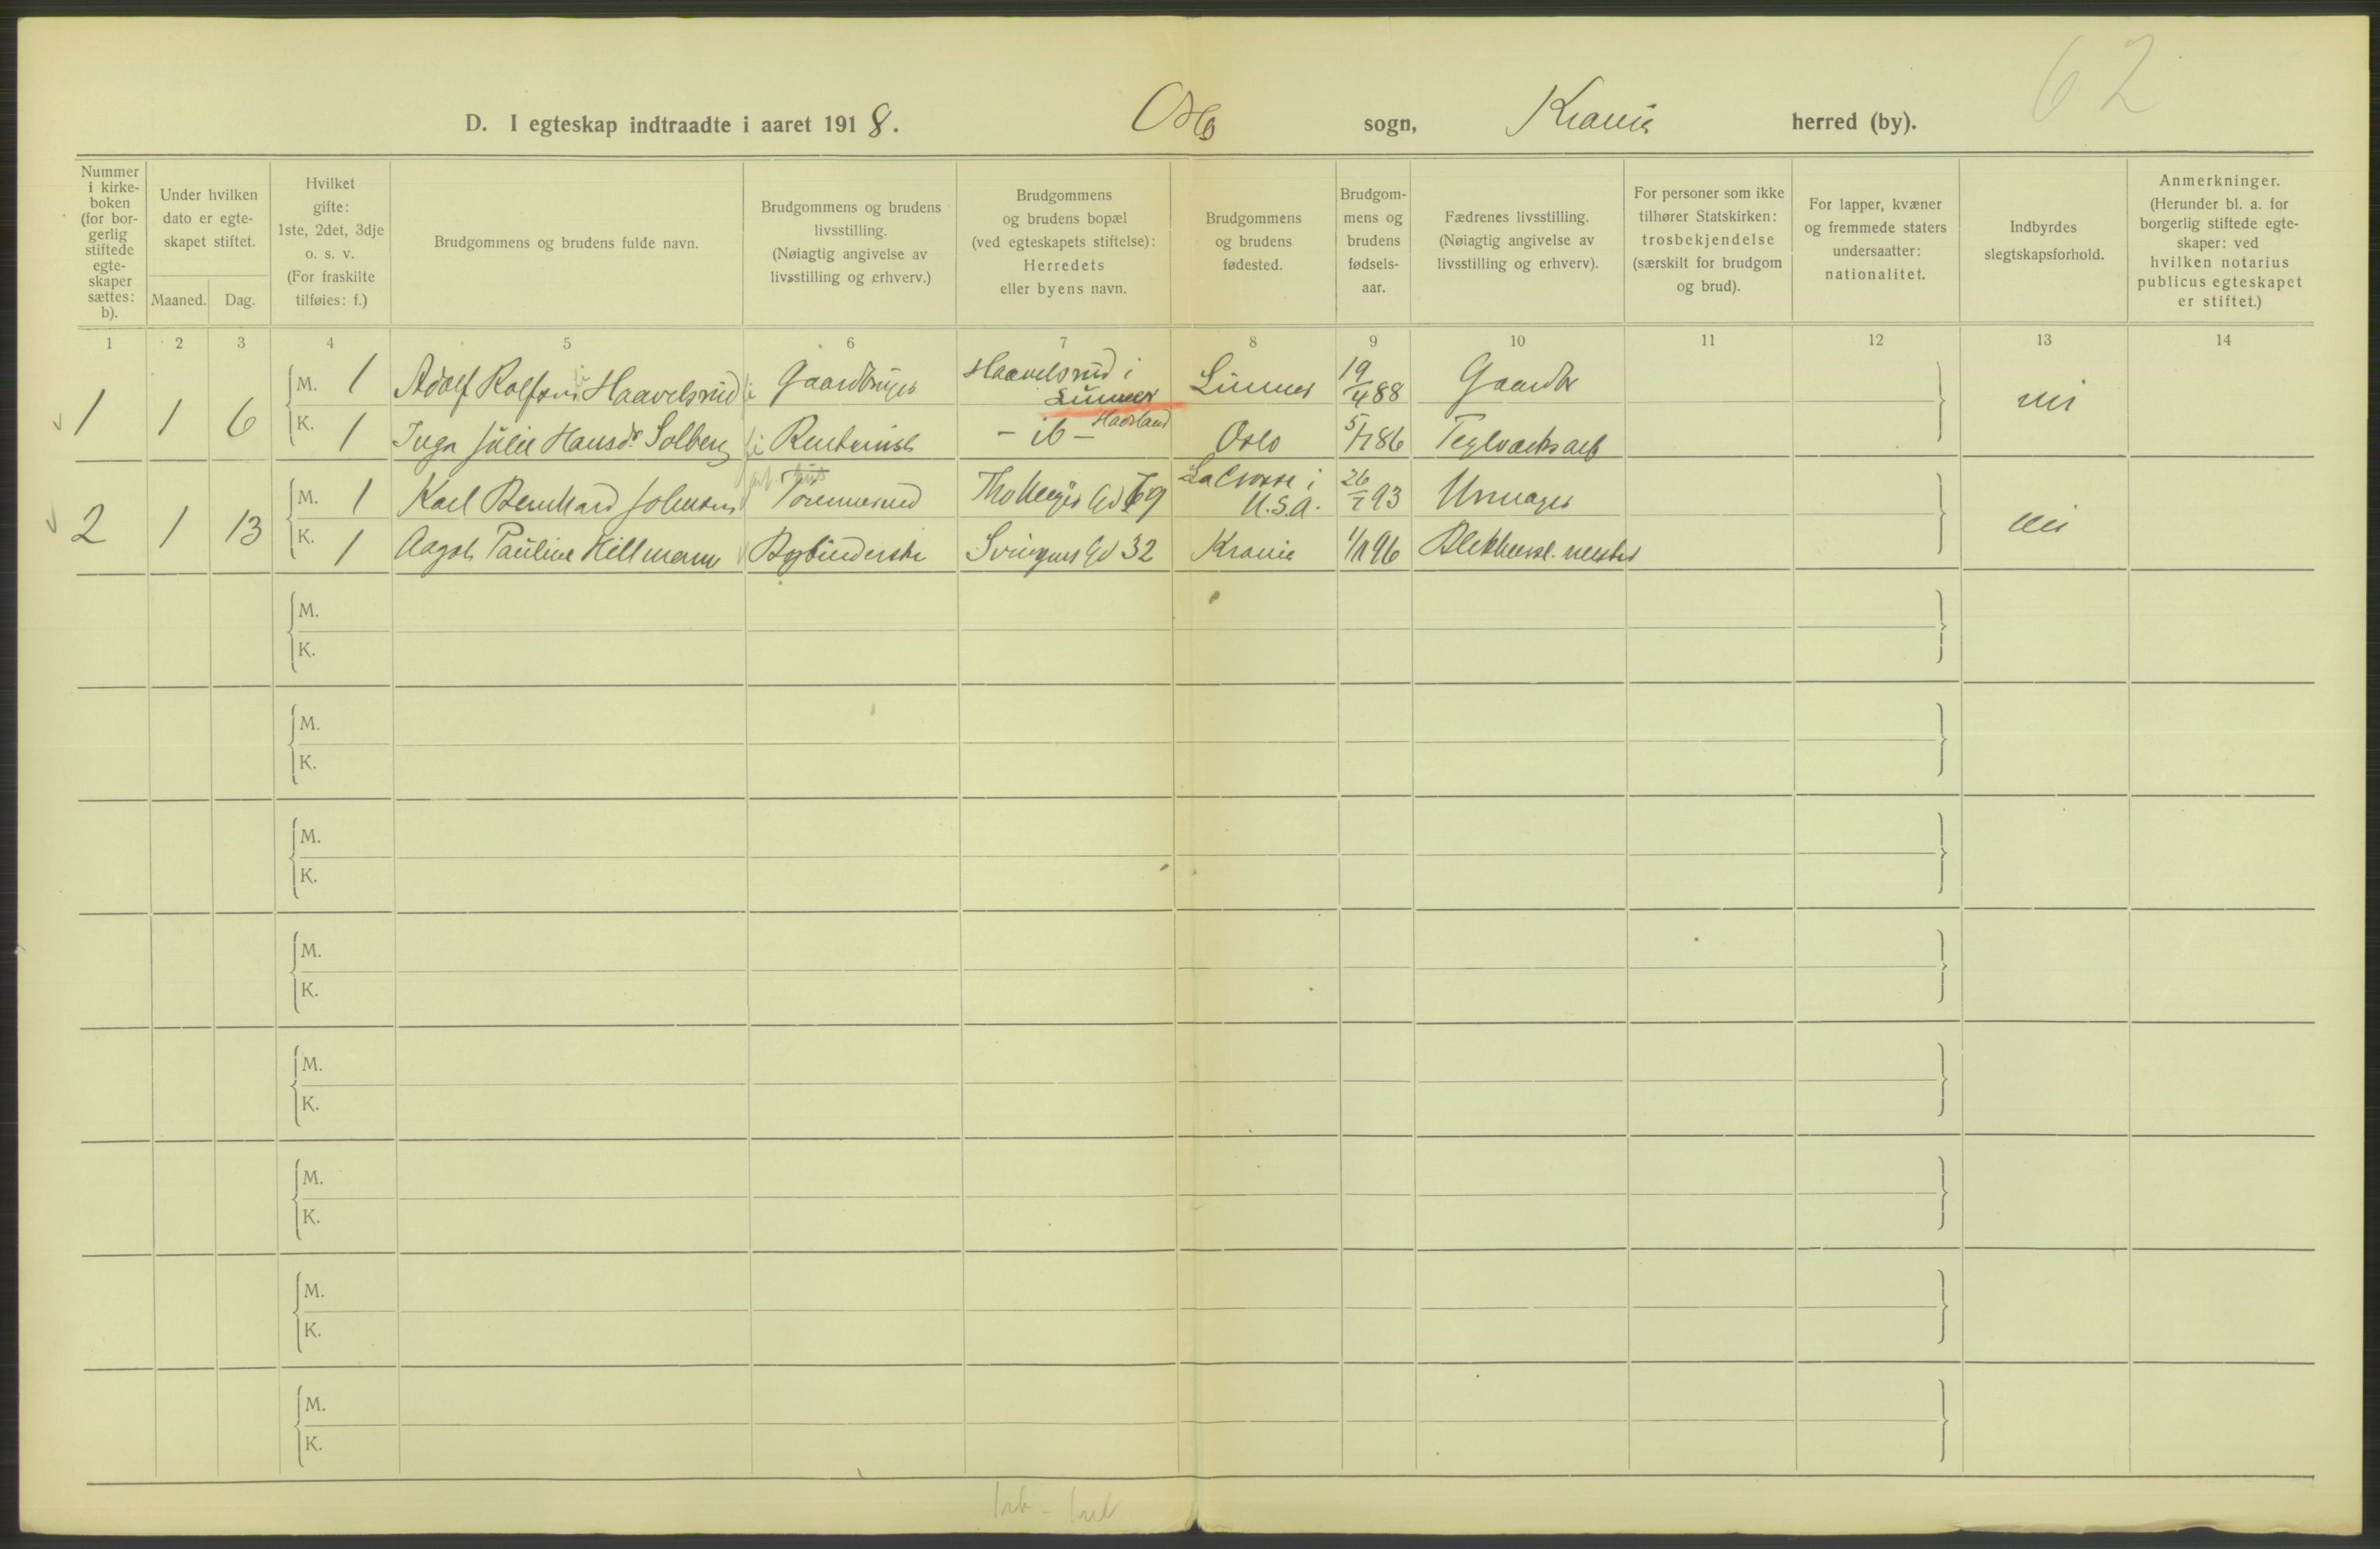 62
D. I egteskap indtraadte i aaret 1918. Oslo sogn, Krania herred (by).
Nummer i kirke-boken (for bor-gerlig stiftede egte-skaper sættes: b).
Under hvilken dato er egte-skapet stiftet.
Maaned. Dag.
Hvilket gifte: 1ste, 2det, 3dje o. s. v. (For fraskilte tilføies: f.)
Brudgommens og brudens fulde navn.
Brudgommens og brudens livsstilling. (Nøiagtig angivelse av livsstilling og erhverv.)
Brudgommens og brudens bopæl (ved egteskapets stiftelse): Herredets eller byens navn.
Brudgommens og brudens fødested.
Brudgom-mens og brudens fødsels-aar.
Fædrenes livsstilling. (Nøiagtig angivelse av livsstilling og erhverv).
For personer som ikke tilhører Statskirken: trosbekjendelse (særskilt for brudgom og brud).
For lapper, kvæner og fremmede staters undersaatter: nationalitet.
Indbyrdes slegtskapsforhold.
Anmerkninger. (Herunder bl. a. for borgerlig stiftede egte-skaper: ved hvilken notarius publicus egteskapet er stiftet.)
1 2 3 4 5 6 7 8 9 10 11 12 13 14
1 1 6 M. 1 Adolf Rolfsen Haavelsrud Gaardbruger Haavelsrud i Lunner Lunner 19/4 88 Gaardbr nei
K. 1 Inga Julie Hansdr Solberg - ib - Hadeland Oslo 5/7 86 Teglværksarb
2 1 13 M. 1 Karl Bernhard Johnsen Tommermand Th Meyers Gd 69 La Crosse i U.S.A. 26/7 93 Urmager nei
K. 1 Aagot Pauline Hillmann Bogbinderske Svingens Gd 32 Krania 1/11 96 Blikkensl. mester
M.
K.
M.
K.
M.
K.
M.
K.
M.
K.
M.
K.
M.
K.
M.
K.